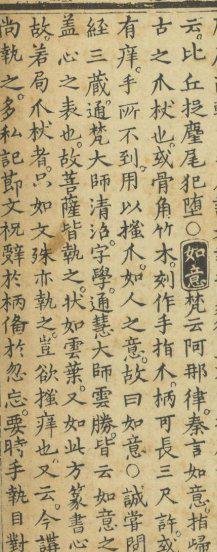 云。比丘捉麈尾犯堕○如意梵云阿那律秦言如意指歸云
古之爪杖也。或骨角竹木。刻作手指爪。柄可長三尺許。或脊
有痒。手所不到。用以搔爪。如人之意。故曰如意○誠嘗問譯
經三蔵通梵大師清沼字學。通慧大師雲勝。皆云如意之
盖心之表也。故菩薩皆執之。状如雲葉。又如此方篆書心
故。若局爪杖者。只如文殊亦執之。豈欲搔痒也。又云。今講
尚執之。多私記節文祝辭於柄偹於忽忘。要時手執目對